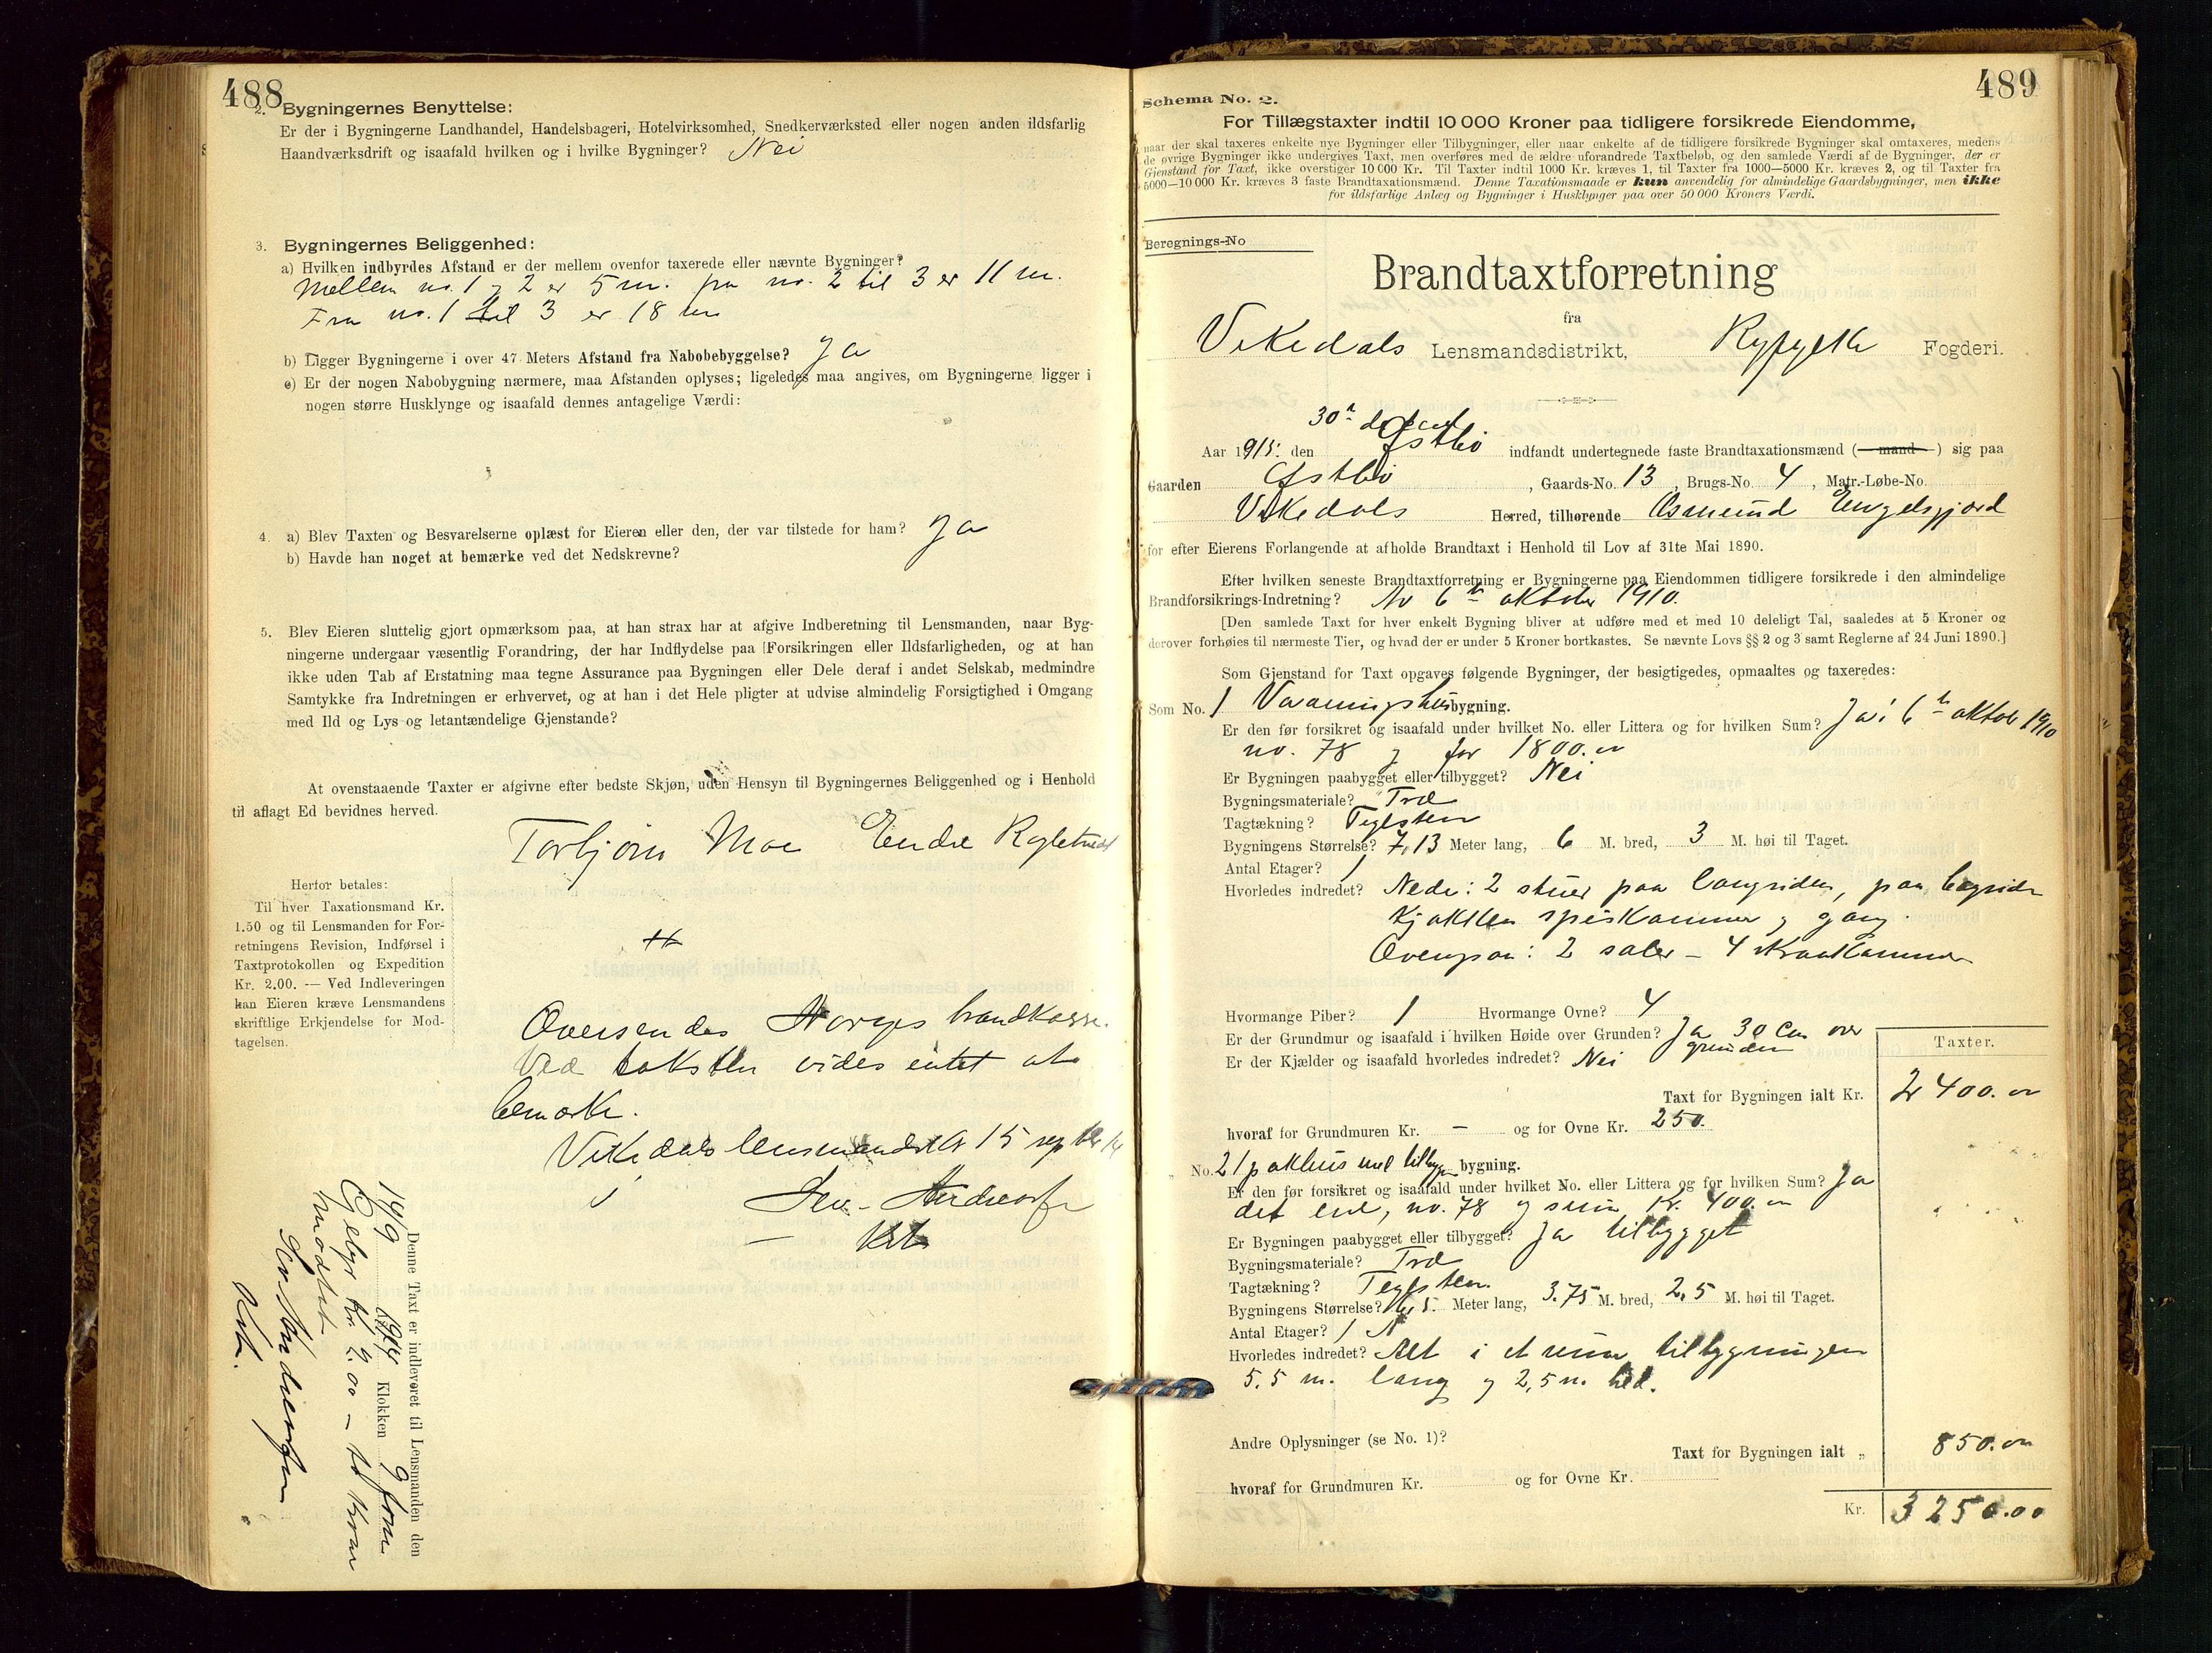 488
2. Bygningernes Benyttelse:
Er der i Bygningerne Landhandel, Handelsbageri, Hotelvirksomhed, Snedkerværksted eller nogen anden ildsfarlig
Haandværksdrift og isaafald hvilken og i hvilke Bygninger? Nei
3. Bygningernes Beliggenhed:
a) Hvilken indbyrdes Afstand er der mellem ovenfor taxerede eller nævnte Bygninger?
Mellem no. 1 og 2 er 5 m. fra no. 2 til 3 er 11 m.
Fra no. 1 til 3 er 18 m
b) Ligger Bygningerne i over 47 Meters Afstand fra Nabobebyggelse? Ja
c) Er der nogen Nabobygning nærmere, maa Afstanden oplyses; ligeledes maa angives, om Bygningerne ligger i
nogen større Husklynge og isaafald dennes antagelige Værdi:
4. a) Blev Taxten og Besvarelserne oplæst for Eieren eller den, der var tilstede for ham? Ja
b) Havde han noget at bemærke ved det Nedskrevne?
5. Blev Eieren sluttelig gjort opmærksom paa, at han strax har at afgive Indberetning til Lensmanden, naar Byg-
ningerne undergaar væsentlig Forandring, der har Indflydelse paa Forsikringen eller Ildsfarligheden, og at han
ikke uden Tab af Erstatning maa tegne Assurance paa Bygningen eller Dele deraf i andet Selskab, medmindre
Samtykke fra Indretningen er erhvervet, og at han i det Hele pligter at udvise almindelig Forsigtighed i Omgang
med Ild og Lys og letantændelige Gjenstande?
At ovenstaaende Taxter er afgivne efter bedste Skjøn, uden Hensyn til Bygningernes Beliggenhed og i Henhold
til aflagt Ed bevidnes herved.
Torbjørn Moe Endre
Herfor betales:
Til hver Taxationsmand Kr.
1.50 og til Lensmanden for For-
retningens Revision, Indførsel i
Taxtprotokollen og Expedition
Kr. 2.00. — Ved Indleveringen
kan Eieren kræve Lensmandens
skriftlige Erkjendelse for Mod-
tagelsen.
Oversendes Norges brandkasse.
Ved taksten vides intet at
bemærke.
Vikedals lensmand 15 sept
Denne Taxt er indleveret til Lensmanden den
14/9 1914 Klokken 9 form
Gebyr kr. 2.00 - to kroner
modtat
489
Schema No. 2.
For Tillægstaxter indtil 10 000 Kroner paa tidligere forsikrede Eiendomme,
naar der skal taxeres enkelte nye Bygninger eller Tilbygninger, eller naar enkelte af de tidligere forsikrede Bygninger skal omtaxeres, medens
de øvrige Bygninger ikke undergives Taxt, men overføres med de ældre uforandrede Taxtbeløb, og den samlede Værdi af de Bygninger, der er
Gjenstand for Taxt, ikke overstiger 10 000 Kr. Til Taxter indtil 1000 Kr. kræves 1, til Taxter fra 1000—5000 Kr. kræves 2, og til Taxter fra
5000—10 000 Kr. kræves 3 faste Brandtaxationsmænd. Denne Taxationsmaade er kun anvendelig for almindelige Gaardsbygninger, men ikke
for ildsfarlige Anlæg og Bygninger i Husklynger paa over 50 000 Kroners Værdi.
Beregnings-No
Brandtaxtforretning
fra
Vikedals Lensmandsdistrikt, Ryfylke Fogderi.
Aar 1915. den Østbø indfandt undertegnede faste Brandtaxationsmænd (mand) sig paa
Gaarden Østbø, Gaards-No. 13, Brugs-No. 4, Matr.-Løbe-No.
Vikedals Herred, tilhørende Osmund
for efter Eierens Forlangende at afholde Brandtaxt i Henhold til Lov af 31te Mai 1890.
Efter hvilken seneste Brandtaxtforretning er Bygningerne paa Eiendommen tidligere forsikrede i den almindelige
Brandforsikrings-Indretning? Av 6te oktober 1910.
[Den samlede Taxt for hver enkelt Bygning bliver at udføre med et med 10 deleligt Tal, saaledes at 5 Kroner og
derover forhøies til nærmeste Tier, og hvad der er under 5 Kroner bortkastes. Se nævnte Lovs §§ 2 og 3 samt Reglerne af 24 Juni 1890.]
Som Gjenstand for Taxt opgaves følgende Bygninger, der besigtigedes, opmaaltes og taxeredes:
Som No. 1 Vaaningshus bygning.
Er den før forsikret og isaafald under hvilket No. eller Littera og for hvilken Sum? Ja i 6te oktob 1910
no. 78 og for 1800.00
Er Bygningen paabygget eller tilbygget? Nei
Bygningsmateriale? Træ
Tagtækning? Teglsten
Bygningens Størrelse? 7,13 Meter lang, 6 M. bred, 3 M. høi til Taget.
Antal Etager? 1
Hvorledes indredet? Nede: 2 stuer paa langsiden, paa bagside
kjøkken spiskammer og gang.
Ovenpaa: 2 saler - 4 kraakammer
Hvormange Piber? 1 Hvormange Ovne? 4
Er der Grundmur og isaafald i hvilken Høide over Grunden? Ja 30 cm over
grunden
Er der Kjælder og isaafald hvorledes indredet? Nei
Taxter.
Taxt for Bygningen ialt Kr. 2 400.00
hvoraf for Grundmuren Kr. - og for Ovne Kr. 250.
No. 2 1 pakhus med tilbygn bygning.
Er den før forsikret og isaafald under hvilket No. eller Littera og for hvilken Sum? Ja
det ene, no. 78 og sum kr. 400.00
Er Bygningen paabygget eller tilbygget? Ja tilbygget
Bygningsmateriale? Træ
Tagtækning? Teglsten.
Bygningens Størrelse? Meter lang, 3.75 M. bred, 2,5 M. høi til Taget.
Antal Etager? 1
Hvorledes indredet? Alt i et rum tilbygningen
5,5 m. lang og 2,5 m. bred.
Andre Oplysninger (se No. 1)?
Taxt for Bygningen ialt „ 850.00
hvoraf for Grundmuren Kr. og for Ovne Kr.
Kr. 3 250.00